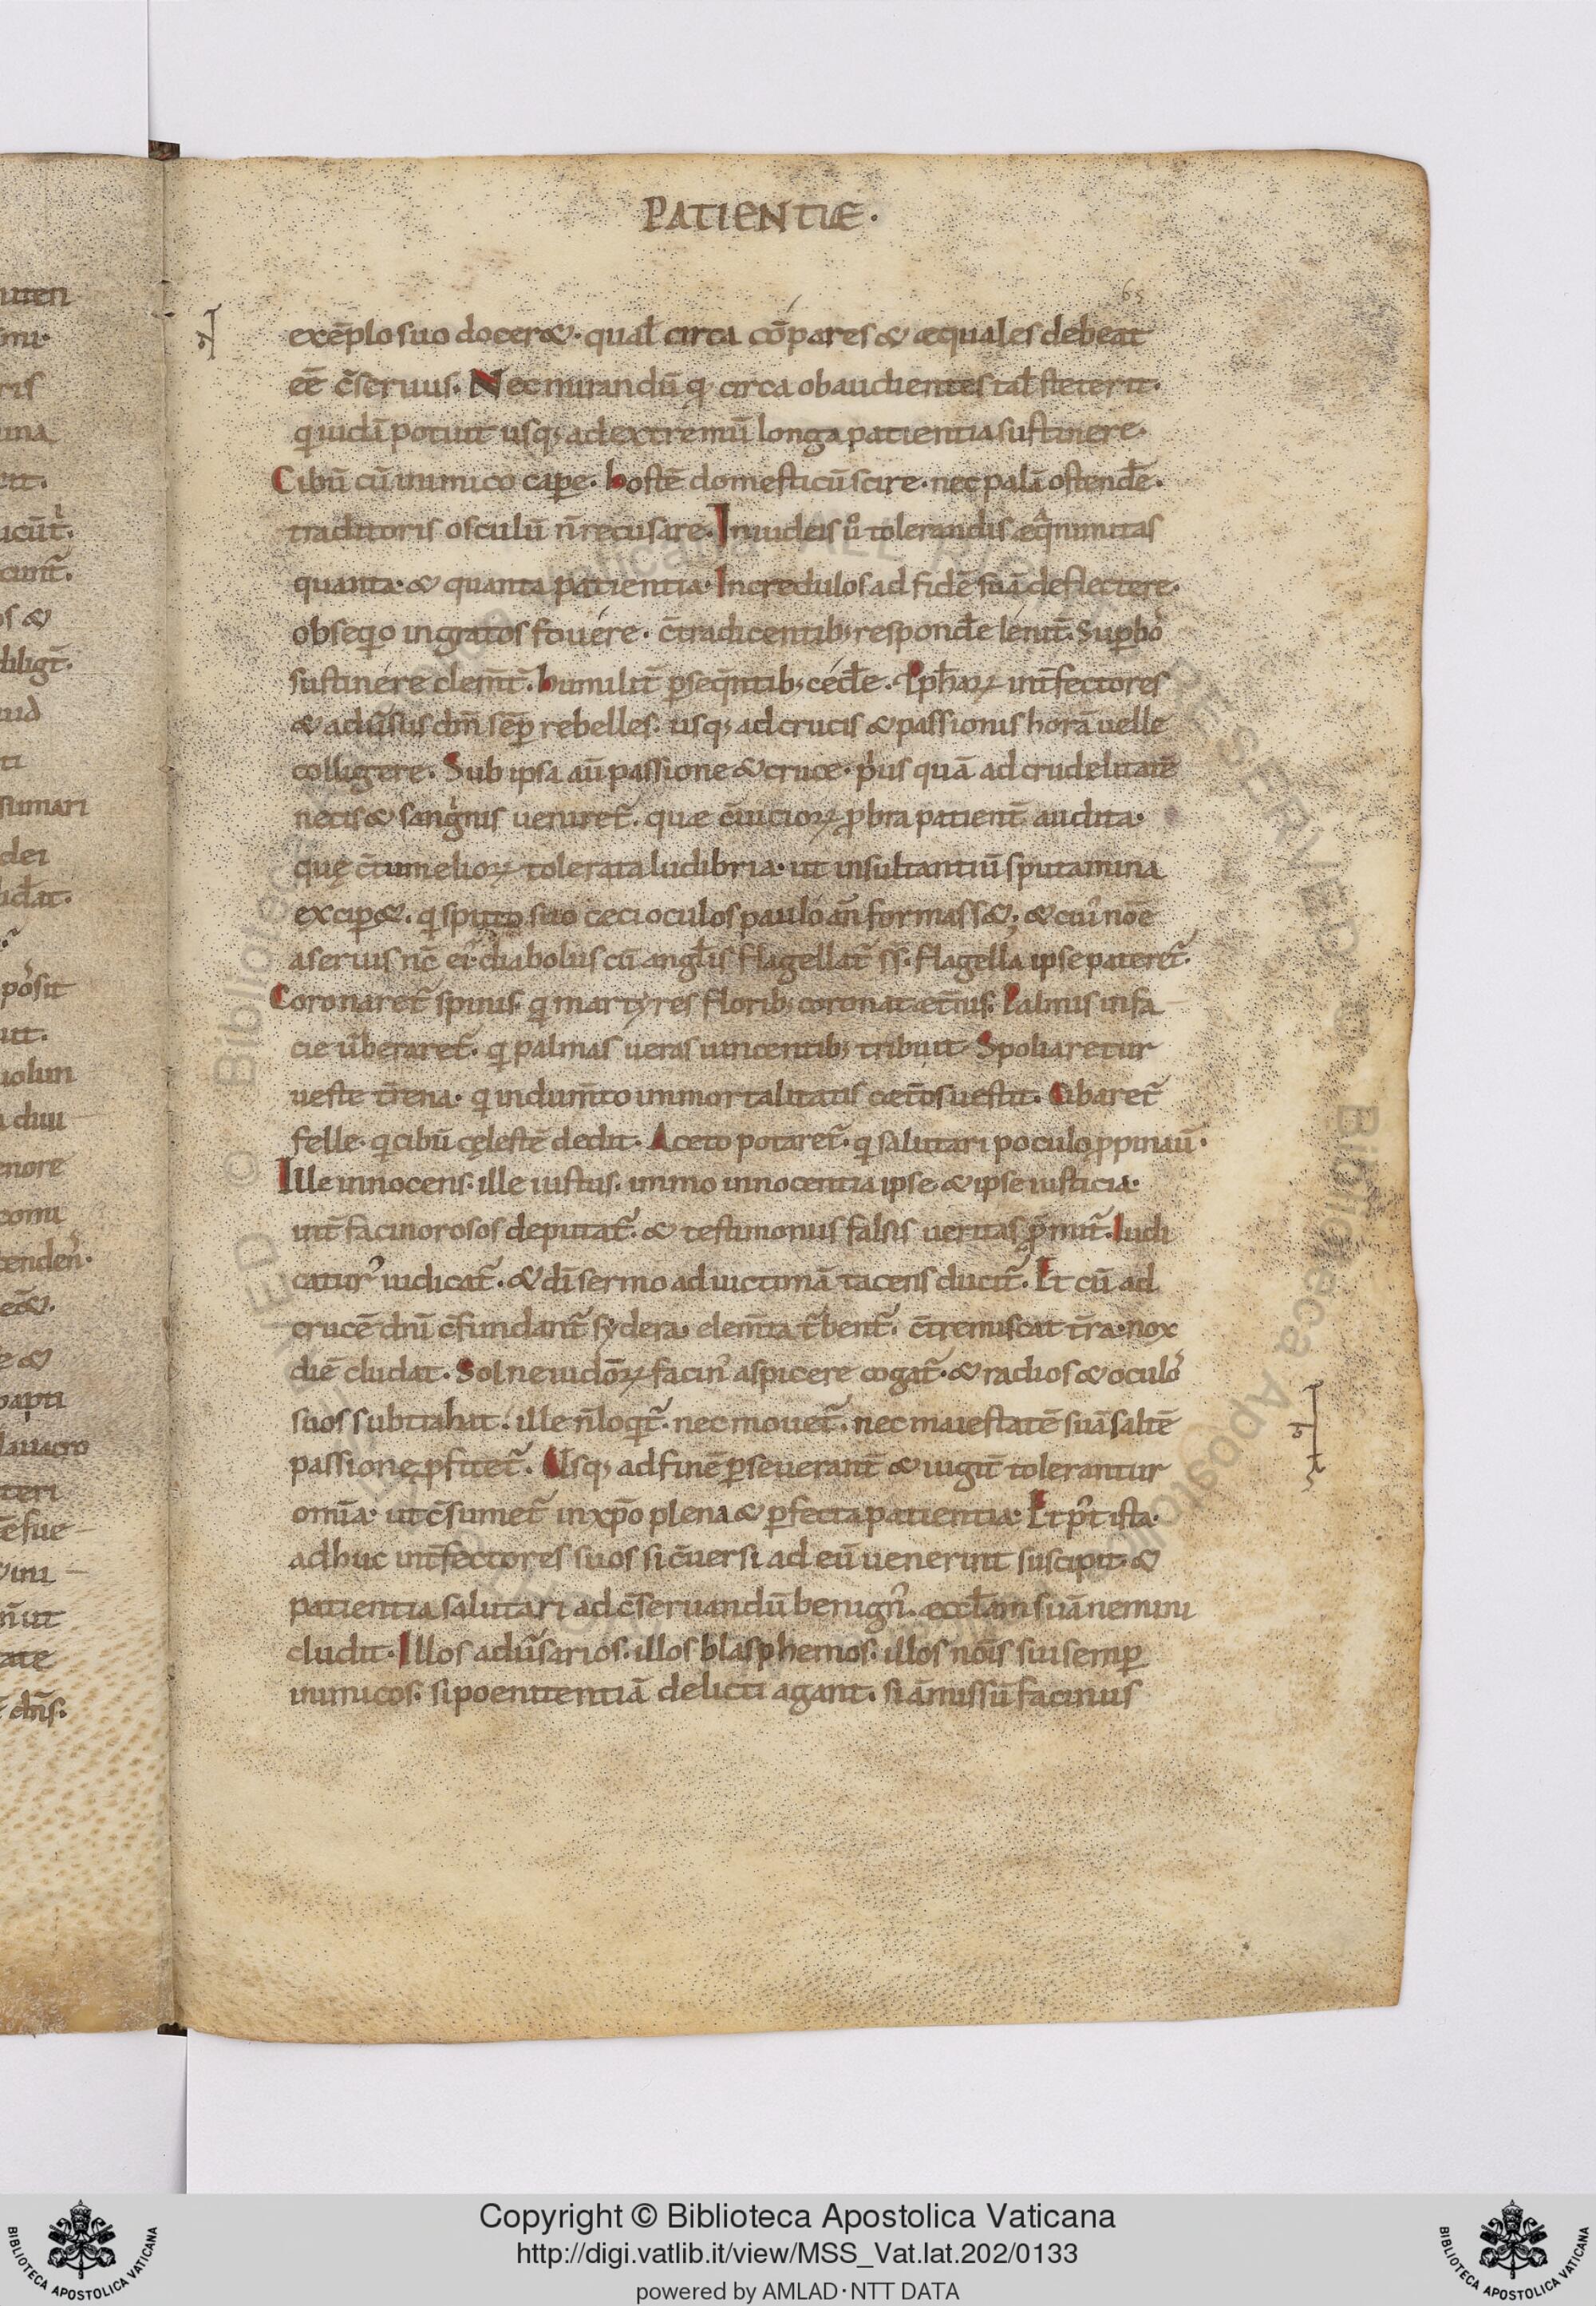 PATIENTIE·
65
exēplo suo docer&· qual̄ circa cōpares & æquales debeat
eē c̄seruus. Nec mirandū qꝫ circa obaudientes tal̄ steterit·
qi iudā potuit usqꝫ ad extremū longa patientia sustinere·
Cibū cū inimico cape· hostē domesticū scire· nec palā ostende·
traditoris osculū n̄ recusare· In iudeis ů tolerandis æqͣnimitas
quanta· & quanta patientia· Incredulos ad fidē suā deflectere·
obseqio ingratos fouere· c̄tradicentibꝫ responde lenit̄. Suꝑbos
sustinere clem̄t̄. humilit̄ ꝑseq̄ntibꝫ cede. Ꝓph̄aꝝ int̄fectores
& adūsus dm̄ sēꝑ rebelles. usqꝫ ad crucis & passionis horā uelle
colligere. Sub ipsa aū passione & cruce· pͥus quā ad crudelitatē
necis & sangͥnis ueniret̄. quæ c̄uicioꝝ ꝓbra patient̄ audita·
quę c̄tumelioꝝ tolerata ludibria· ut insultantiū sputamina
excip&. qi sputo suo ceci oculos paulo an̄ formass&; & cuiꝰ noē
a seruis nc̄ ei· diabolus cū angl̄is flagellat̄ ss· flagella ipse pateret̄·
Coronaret̄ spinis. qi martyres floribꝫ coronat æt̄nis. Palmis in fa
cie ūberaret̄. qi palmas ueras uincentibꝫ tribuit. Spoliaretur
ueste t̄rena· qi indum̄to immortalitatis cæt̄os uestit. Cibaret̄
felle· qi cibū cęlestē dedit. Aceto potaret̄· qi salutari poculo ꝓpinauit·
Ille innocens· ille iustus. immo innocentia ipse & ipse iusticia·
int̄ facinorosos deputat̄· & testimoniis falsis ueritas p̄mit̄. Iudi
caturꝰ iudicat̄. & dī sermo ad uictimā tacens ducit̄. Et cū ad
crucē dn̄i c̄fundant̄ sydera· elem̄ta t̄bent̄. c̄tremiscat t̄ra· nox
diē cludat. Sol ne iudōꝝ facinꝰ aspicere cogat̄· & radios & oculos
suos subtrahit. ille n̄ loqit̄. nec mouet̄. nec maiestatē suā saltē
passione ꝓfitet̄. Usqꝫ ad finē ꝑseuerant̄ & iugit̄ tolerantur
omīa· ut c̄sumet̄ in xp̄o plena & ꝑfecta patientia· Et pꝰt ista·
adhuc int̄fectores suos si c̄uersi ad eū uenerint suscipit· &
patientia salutari ad c̄seruandū benignꝰ. æccl̄am suā nemini
cludit. Illos adūsarios. illos blasphemos. illos noīs sui semꝑ
inimicos. si poenitentiā delicti agant. si āmissū facinus
Copyright © Biblioteca Apostolica Vaticana
http://digi.vatlib.it/view/MSS_Vat.lat.202/0133
powered by AMLAD·NTT DATA